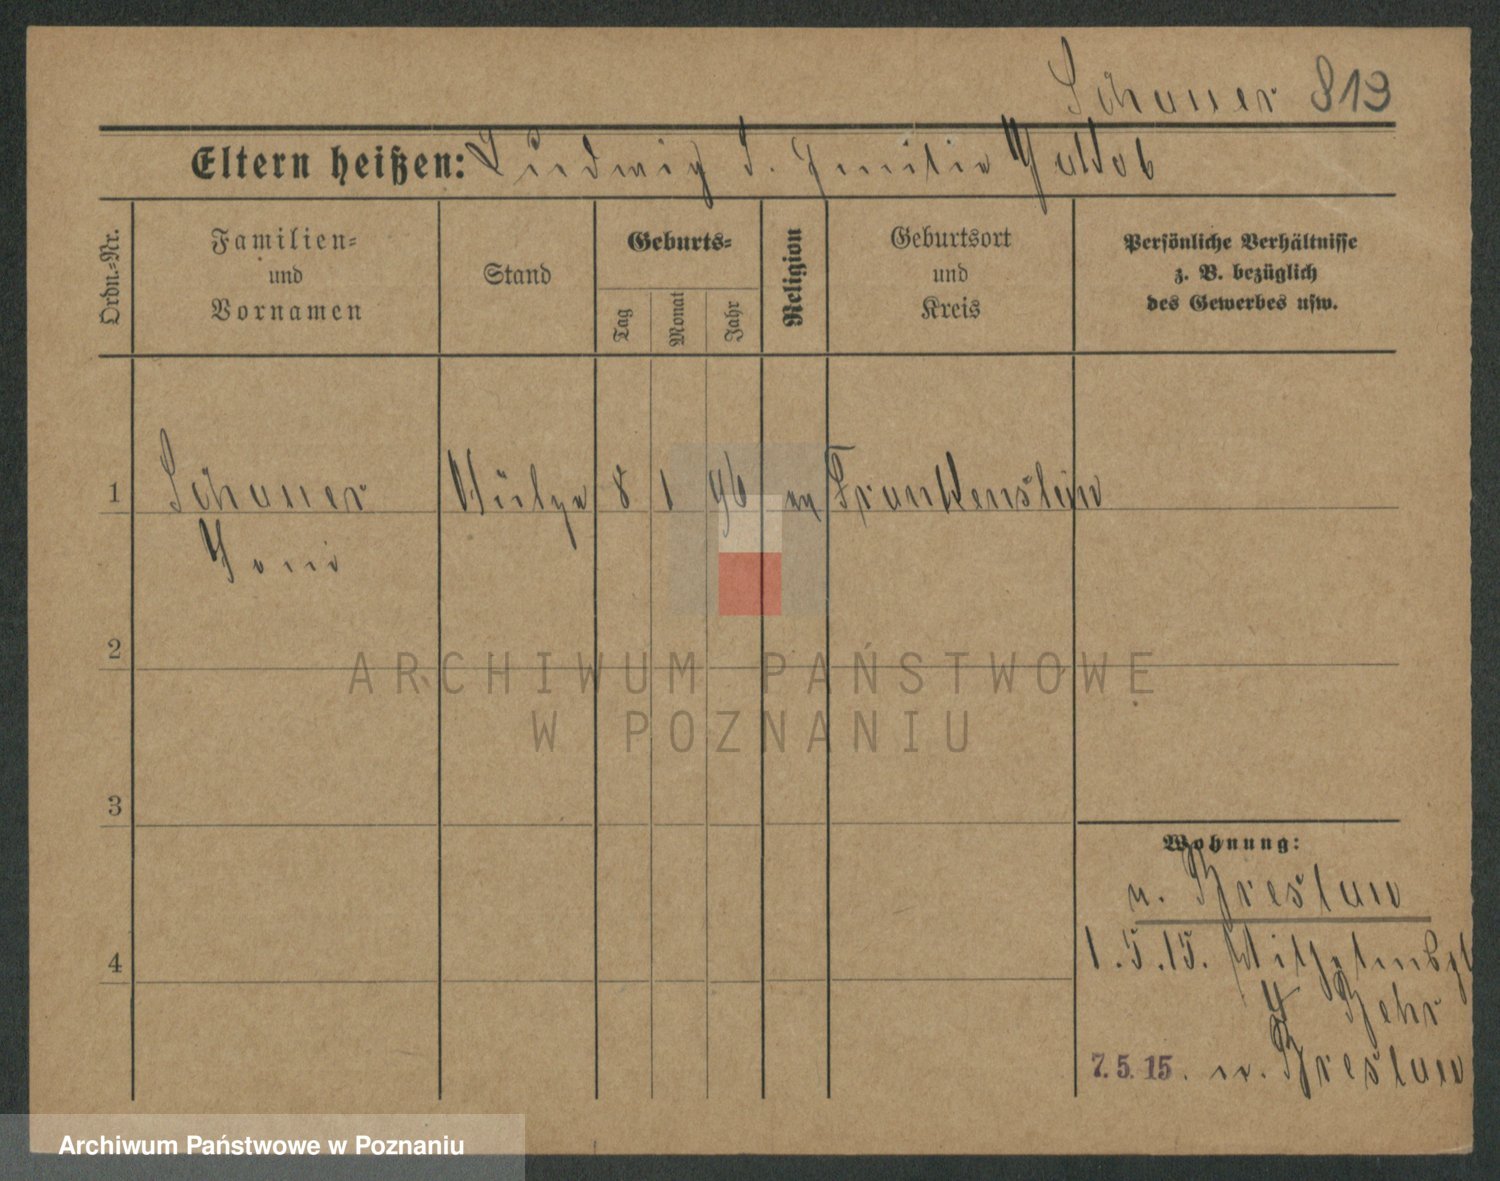 Schauer 813
Eltern heißen: Ludwig J. Emilie
Ordn.-Nr.
Familien-
und
Vornamen
Stand
Geburts-
Tag
Monat
Jahr
Religion
Geburtsort
und
Kreis
Persönliche Verhältnisse
z. B. bezüglich
des Gewerbes usw.
1 Schauer 8 1 96 Frankenstein
2
3
4
Wohnung:
n. Breslau
1.5.15.
Behr
7.5.15. n. Breslau
ARCHIWUM PAŃSTWOWE
W POZNANIU
Archiwum Państwowe w Poznaniu